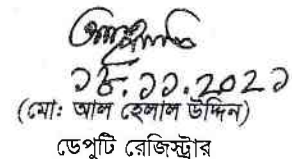 ১৮.১১.2021
(মো: আল হেলাল উদ্দিন)
ডেপুটি রেজিস্ট্রার